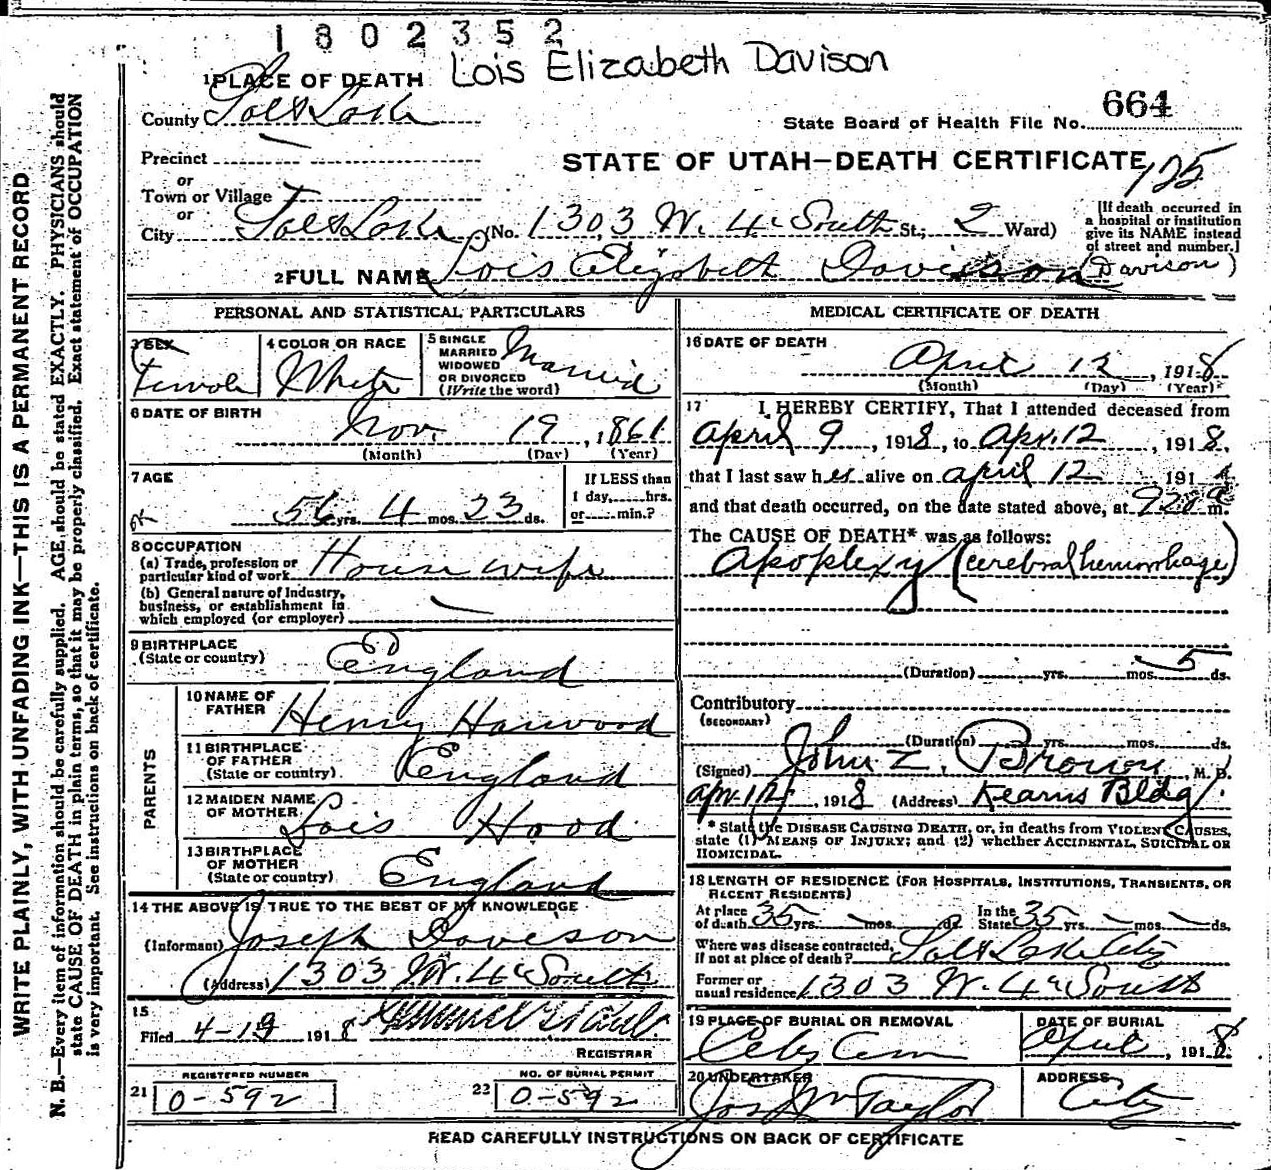 1802352
Lois Elizabeth Davison
1 PLACE OF DEATH
County Salt Lake
State Board of Health File No. 664
Precinct
STATE OF UTAH—DEATH CERTIFICATE
125
or
Town or Village
or
City Salt Lake (No. 1303 W. 4th South St.; 2 Ward)
[If death occurred in
a hospital or institution
give its NAME instead
of street and number.]
2 FULL NAME Lois Elizabeth Davison
(Davison)
PERSONAL AND STATISTICAL PARTICULARS
3 SEX
Female
4 COLOR OR RACE
White
5 SINGLE
MARRIED
WIDOWED
OR DIVORCED
(Write the word)
Married
6 DATE OF BIRTH
Nov. 19, 1861
(Month) (Day) (Year)
7 AGE
56 yrs. 4 mos. 23 ds.
If LESS than
1 day, hrs.
or min.?
8 OCCUPATION
(a) Trade, profession or
particular kind of work Housewife
(b) General nature of Industry,
business, or establishment in
which employed (or employer)
9 BIRTHPLACE
(State or country)
England
PARENTS
10 NAME OF
FATHER
Henry Harwood
11 BIRTHPLACE
OF FATHER
(State or country)
England
12 MAIDEN NAME
OF MOTHER
Lois Hood
13 BIRTHPLACE
OF MOTHER
(State or country)
England
14 THE ABOVE IS TRUE TO THE BEST OF MY KNOWLEDGE
(Informant) Joseph Davison
(Address) 1303 W. 4th South
15
Filed 4-19 1918
REGISTRAR
REGISTERED NUMBER
21 0-592
NO. OF BURIAL PERMIT
22 0-592
MEDICAL CERTIFICATE OF DEATH
16 DATE OF DEATH
April 12, 1918
(Month) (Day) (Year)
17 I HEREBY CERTIFY, That I attended deceased from
April 9, 1918, to Apr. 12, 1918,
that I last saw her alive on April 12 191
and that death occurred, on the date stated above, at 920a m.
The CAUSE OF DEATH* was as follows:
Apoplexy (cerebral hemorrhage)
(Duration) yrs. mos. 5 ds.
Contributory
(SECONDARY)
(Duration) yrs. mos. ds.
(Signed) John Z. Brown, M. D.
Apr. 12, 1918 (Address) Kearns Bldg.
* State the DISEASE CAUSING DEATH, or, in deaths from VIOLENT CAUSES,
state (1) MEANS OF INJURY; and (2) whether ACCIDENTAL, SUICIDAL OR
HOMICIDAL.
18 LENGTH OF RESIDENCE (FOR HOSPITALS, INSTITUTIONS, TRANSIENTS, OR
RECENT RESIDENTS)
At place
of death 35 yrs. mos. ds.
In the
State 35 yrs. mos. ds.
Where was disease contracted,
If not at place of death? Salt Lake City
Former or
usual residence 1303 W. 4th South
19 PLACE OF BURIAL OR REMOVAL
City Cem
DATE OF BURIAL
April, 1918
20 UNDERTAKER
Jos Wm Taylor
ADDRESS
City
READ CAREFULLY INSTRUCTIONS ON BACK OF CERTIFICATE
WRITE PLAINLY, WITH UNFADING INK—THIS IS A PERMANENT RECORD
N. B.—Every item of information should be carefully supplied. AGE should be stated EXACTLY. PHYSICIANS should
state CAUSE OF DEATH in plain terms, so that it may be properly classified. Exact statement of OCCUPATION
is very important. See instructions on back of certificate.